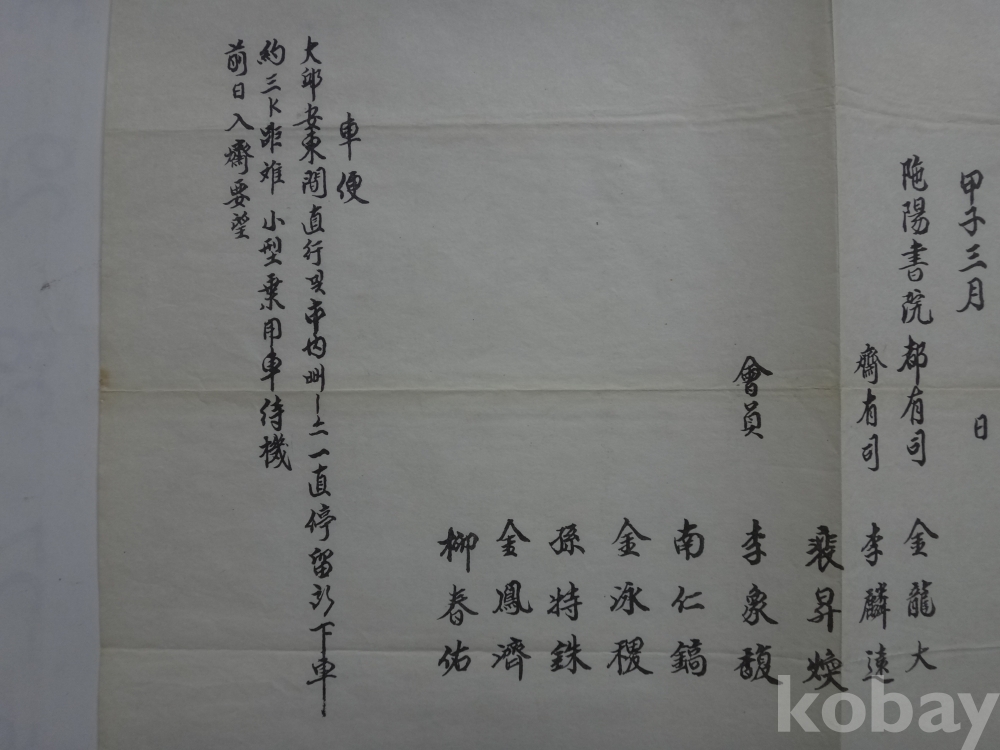 甲子三月 日
陁陽書院 都有司 金龍大
齋有司 李麟遠
裵昇煥
會員 李象馥
南仁鎬
金泳稷
孫特銖
金鳳濟
柳春佑
車便
大邱安東間直行 市内 一直停留所下車
約三K距離 小型乗用車待機
前日入齋要望
kobay